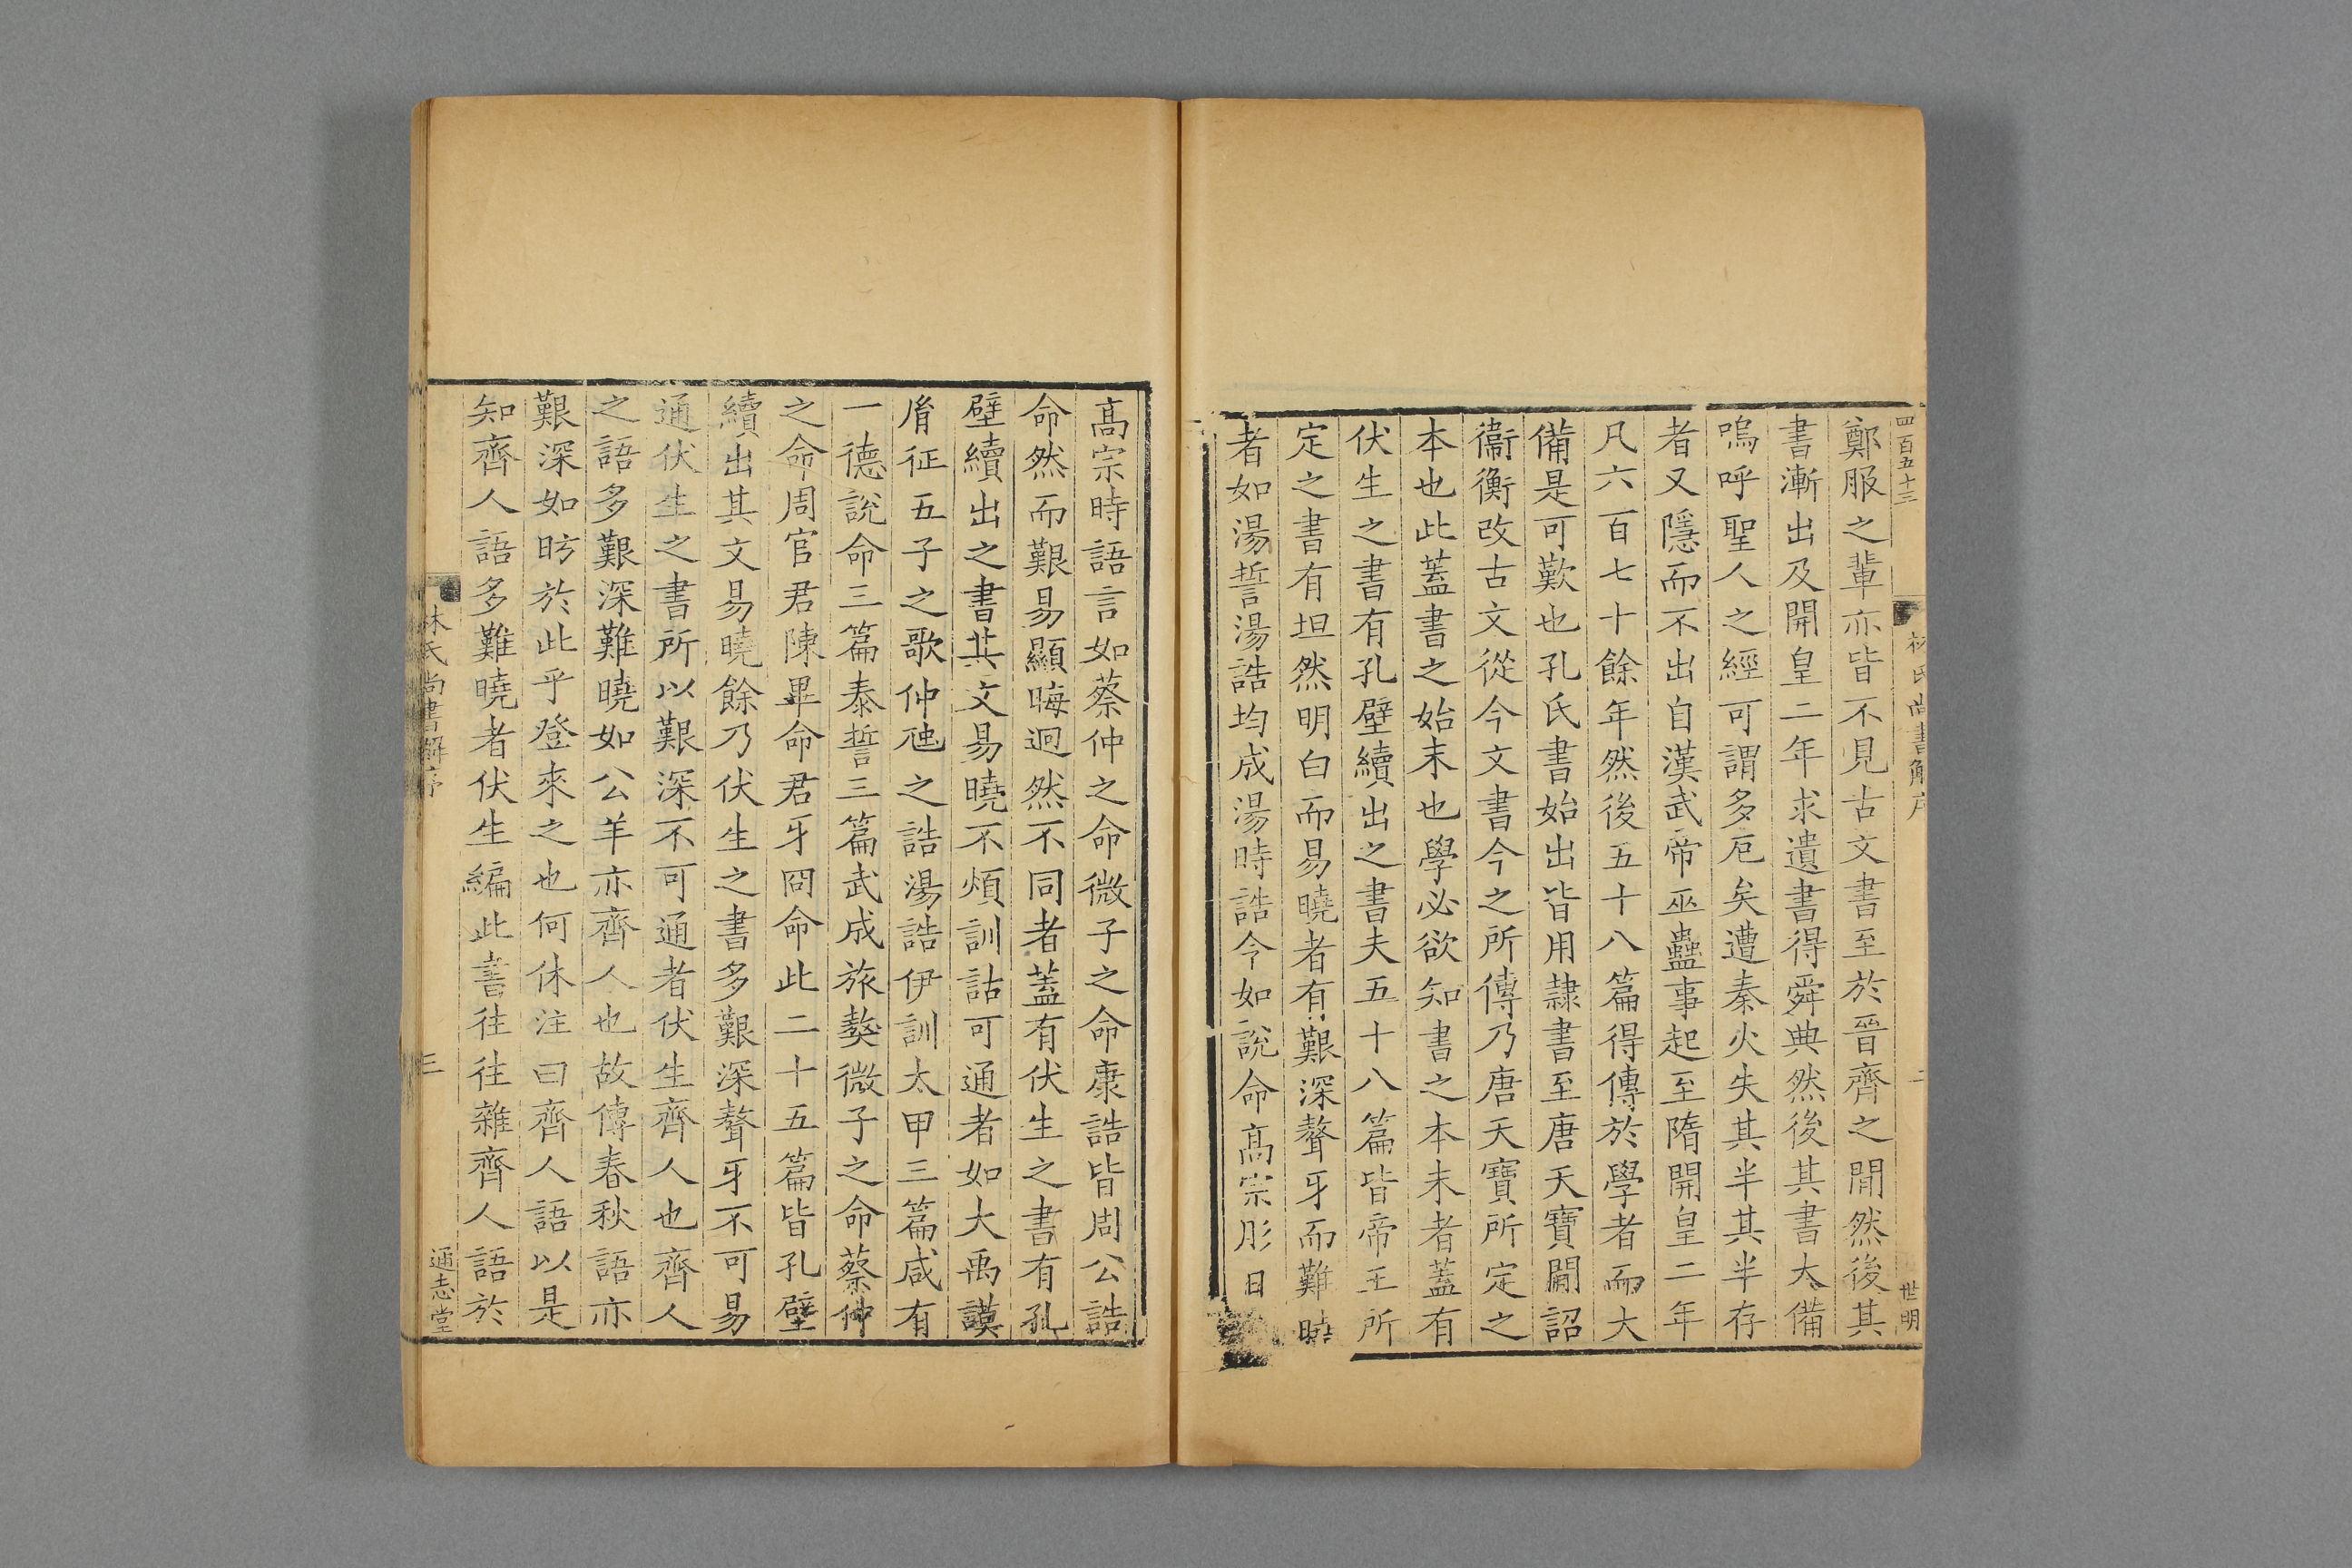 四百五十三
林氏尚書解序
二
世明
鄭服之輩亦皆不見古文書至於晉齊之閒然後其
書漸出及開皇二年求遺書得舜典然後其書大備
嗚呼聖人之經可謂多厄矣遭秦火失其半其半存
者又隱而不出自漢武帝巫蠱事起至隋開皇二年
凡六百七十餘年然後五十八篇得傳於學者而大
備是可歎也孔氏書始出皆用隷書至唐天寶開詔
衞衡改古文從今文書今之所傳乃唐天寶所定之
本也此蓋書之始末也學必欲知書之本末者蓋有
伏生之書有孔壁續出之書夫五十八篇皆帝王所
定之書有坦然明白而易曉者有艱深聱牙而難曉
者如湯誓湯誥均成湯時誥令如說命髙宗肜日
髙宗時語言如蔡仲之命微子之命康誥皆周公誥
命然而艱易顯晦迥然不同者蓋有伏生之書有孔
壁續出之書其文易曉不煩訓詁可通者如大禹謨
胤征五子之歌仲虺之誥湯誥伊訓太甲三篇咸有
一德說命三篇泰誓三篇武成旅獒微子之命蔡仲
之命周官君陳畢命君牙冏命此二十五篇皆孔壁
續出其文易曉餘乃伏生之書多艱深聱牙不可易
通伏生之書所以艱深不可通者伏生齊人也齊人
之語多艱深難曉如公羊亦齊人也故傳春秋語亦
艱深如昉於此乎登來之也何休注曰齊人語以是
知齊人語多難曉者伏生編此書往往雜齊人語於
林氏尚書解序
三
通志堂